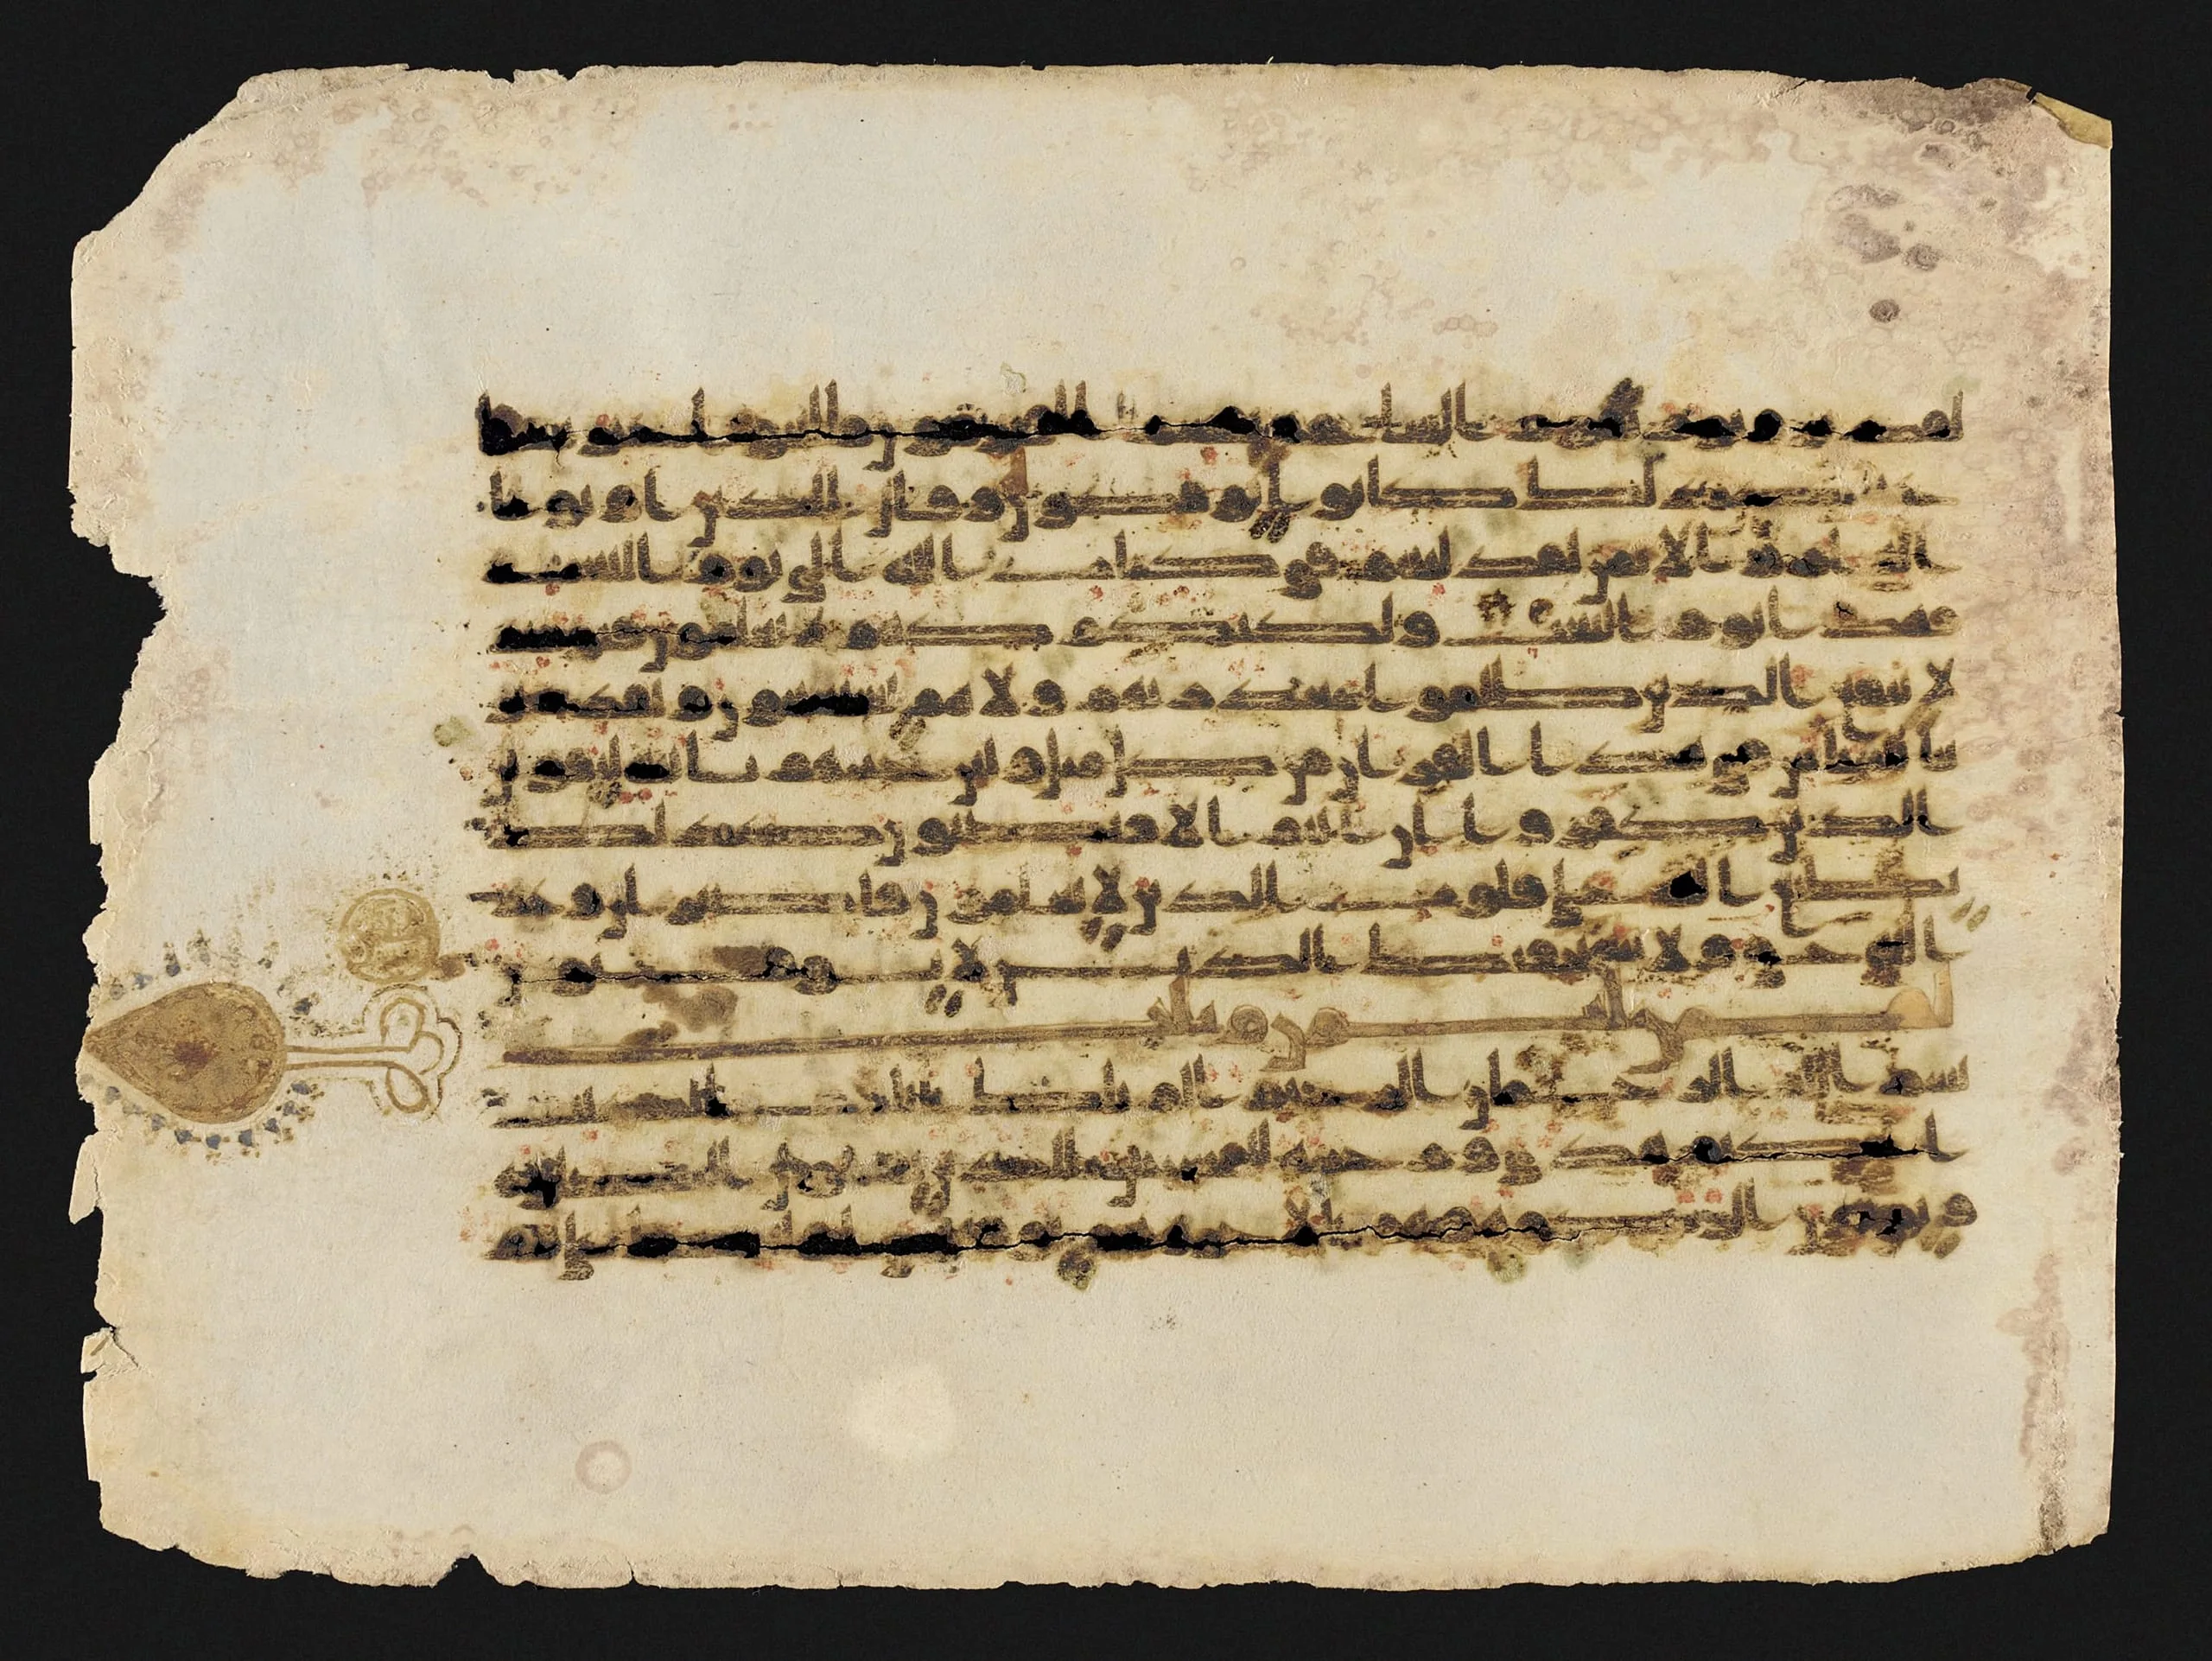 لقدير ويوم تقوم الساعة يقسم المجرمون ما لبثوا
غير ساعة كذلك كانوا يؤفكون وقال الذين اوتوا
العلم والايمن لقد لبثتم في كتاب الله الى يوم البعث
فهذا يوم البعث ولكنكم كنتم لا تعلمون فيومئذ
لا ينفع الذين ظلموا معذرتهم ولا هم يستعتبون ولقد ضربنا
للناس في هذا القران من كل مثل ولئن جئتهم باية ليقولن
الذين كفروا ان انتم الا مبطلون كذلك
يطبع الله على قلوب الذين لا يعلمون فاصبر ان وعد
الله حق ولا يستخفنك الذين لا يوقنون
بسم الله الرحمن الرحيم الم تلك ايت الكتب
الحكيم هدى ورحمة للمحسنين الذين يقيمون الصلوة
ويؤتون الزكوة وهم بالاخرة هم يوقنون اولئك على